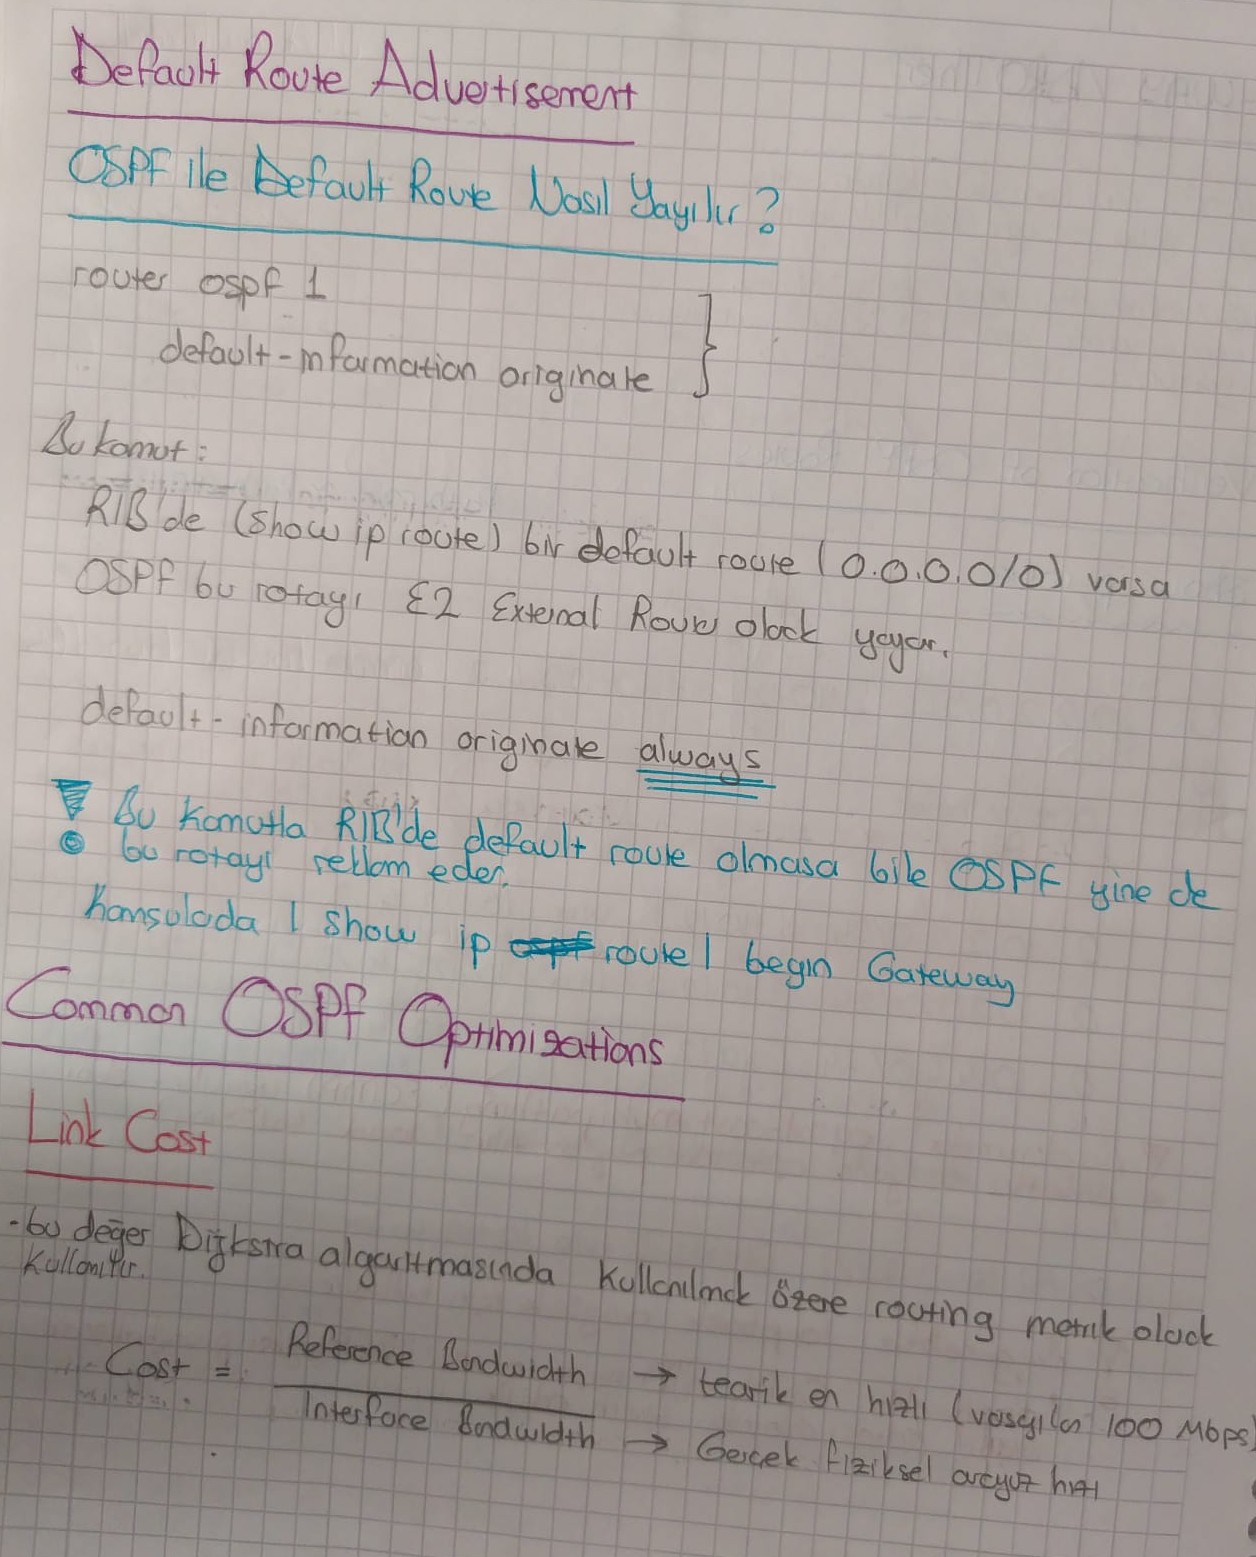 Default Route Advertisement
OSPF ile Default Route Nasıl Yayılır?
router ospf 1
default-information originate
Bu komut:
RIB'de (show ip route) bir default route (0.0.0.0/0) varsa
OSPF bu rotayı E2 External Route olarak yayar.
default-information originate always
Bu komutla RIB'de default route olmasa bile OSPF yine de
bu rotayı reklam eder.
Konsolada | show ip route | begin Gateway
Common OSPF Optimizations
Link Cost
-bu değer Dijkstra algoritmasında kullanılmak özere routing metrik olarak
kullanılır.
Cost = Reference Bandwidth → tearik en hızlı (varsayılan 100 Mbps)
Interface Bandwidth → Gerçek fiziksel arayüz hızı